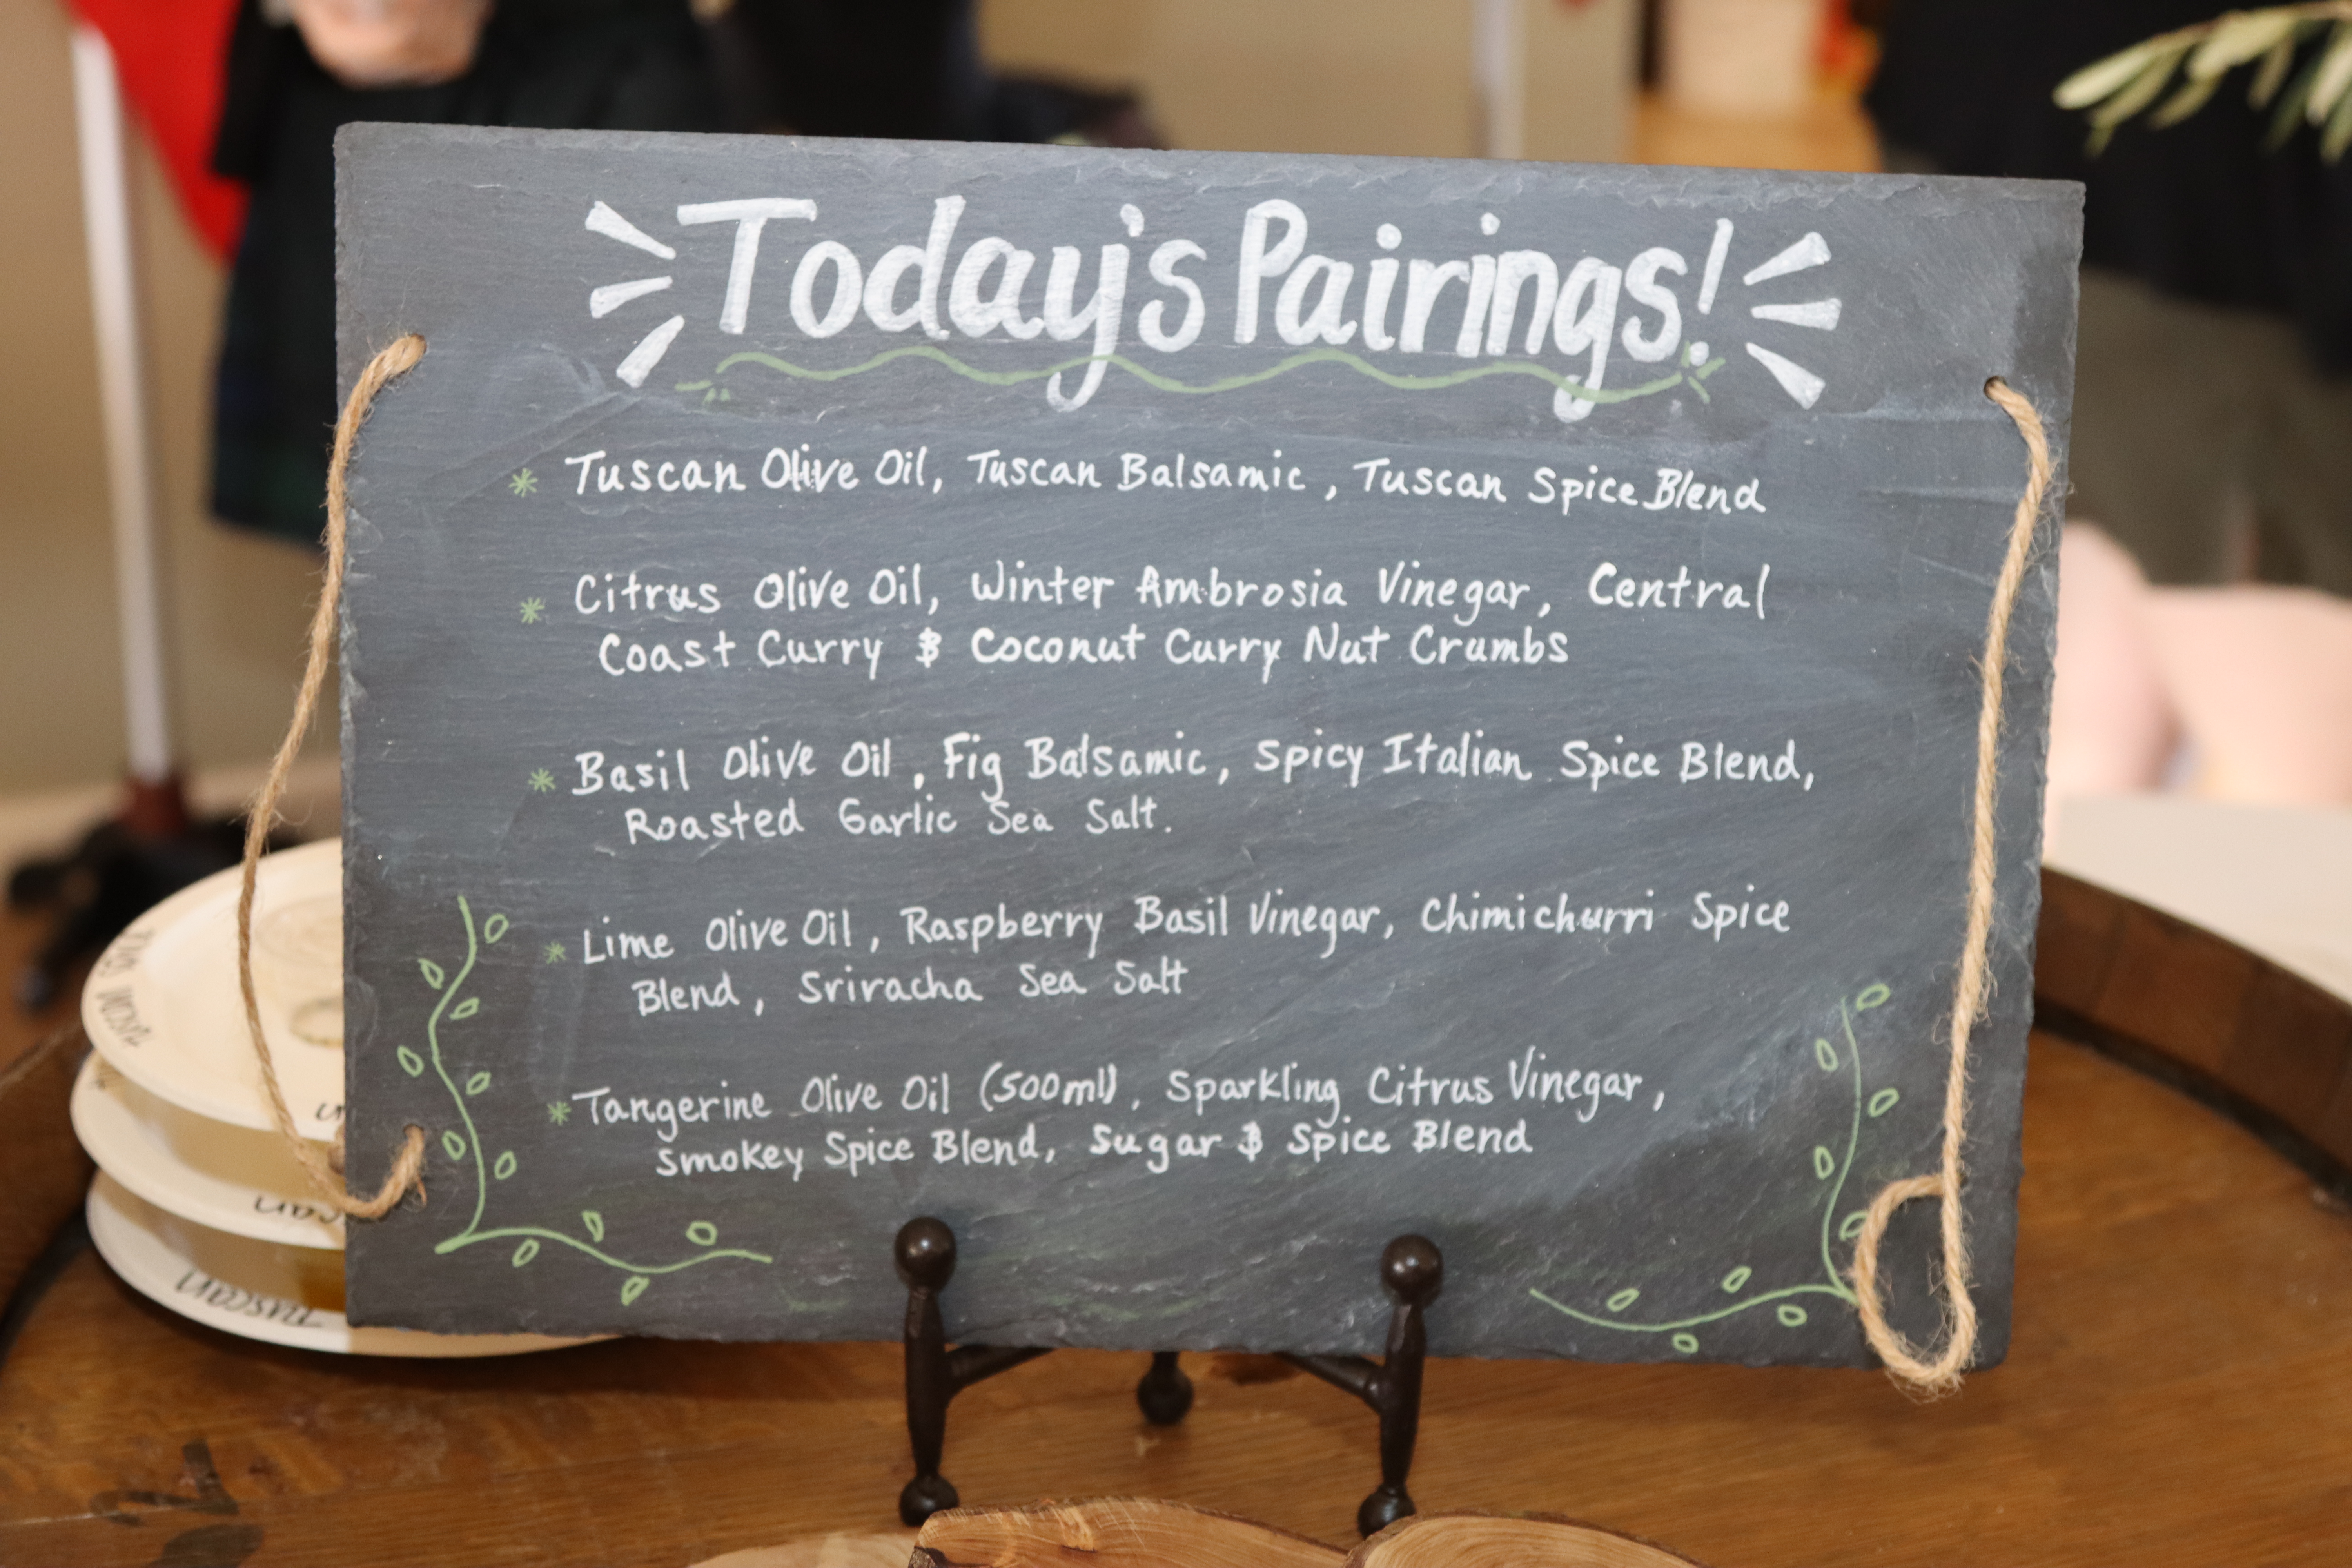 Today's Pairings!
* Tuscan Olive Oil, Tuscan Balsamic, Tuscan Spice Blend
* Citrus Olive Oil, Winter Ambrosia Vinegar, Central
Coast Curry & Coconut Curry Nut Crumbs
* Basil Olive Oil, Fig Balsamic, Spicy Italian Spice Blend,
Roasted Garlic Sea Salt.
* Lime Olive Oil, Raspberry Basil Vinegar, Chimichurri Spice
Blend, Sriracha Sea Salt
* Tangerine Olive Oil (500ml), Sparkling Citrus Vinegar,
Smokey Spice Blend, Sugar & Spice Blend